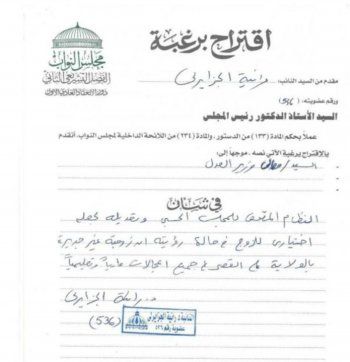 اقتراح برغبة
مجلس النواب
الفصل التشريعي الثاني
دور الانعقاد العادي الأول
مقدم من السيد النائب: رانية الجزايرلي
ورقم عضويته: (536)
السيد الأستاذ الدكتور رئيس المجلس
عملاً بحكم المادة (١٣٣) من الدستور، والمادة (٢٣٤) من اللائحة الداخلية لمجلس النواب، أتقدم
بالاقتراح برغبة الآتي نصه، موجها إلى:
السيد/ معالي وزير العدل
في شأن
النظام المتعلق للمجلس الحسبي وتعديله بجعله
اختيارى للزوج فى حالة رؤيته ان زوجته غير جديرة
بالولاية على القصر فى جميع المجالات ماديا وتعليميا
رانية الجزايرلي
(536)
النائبة د. رانية الجزايرلي
عضوية رقم ٥٣٦